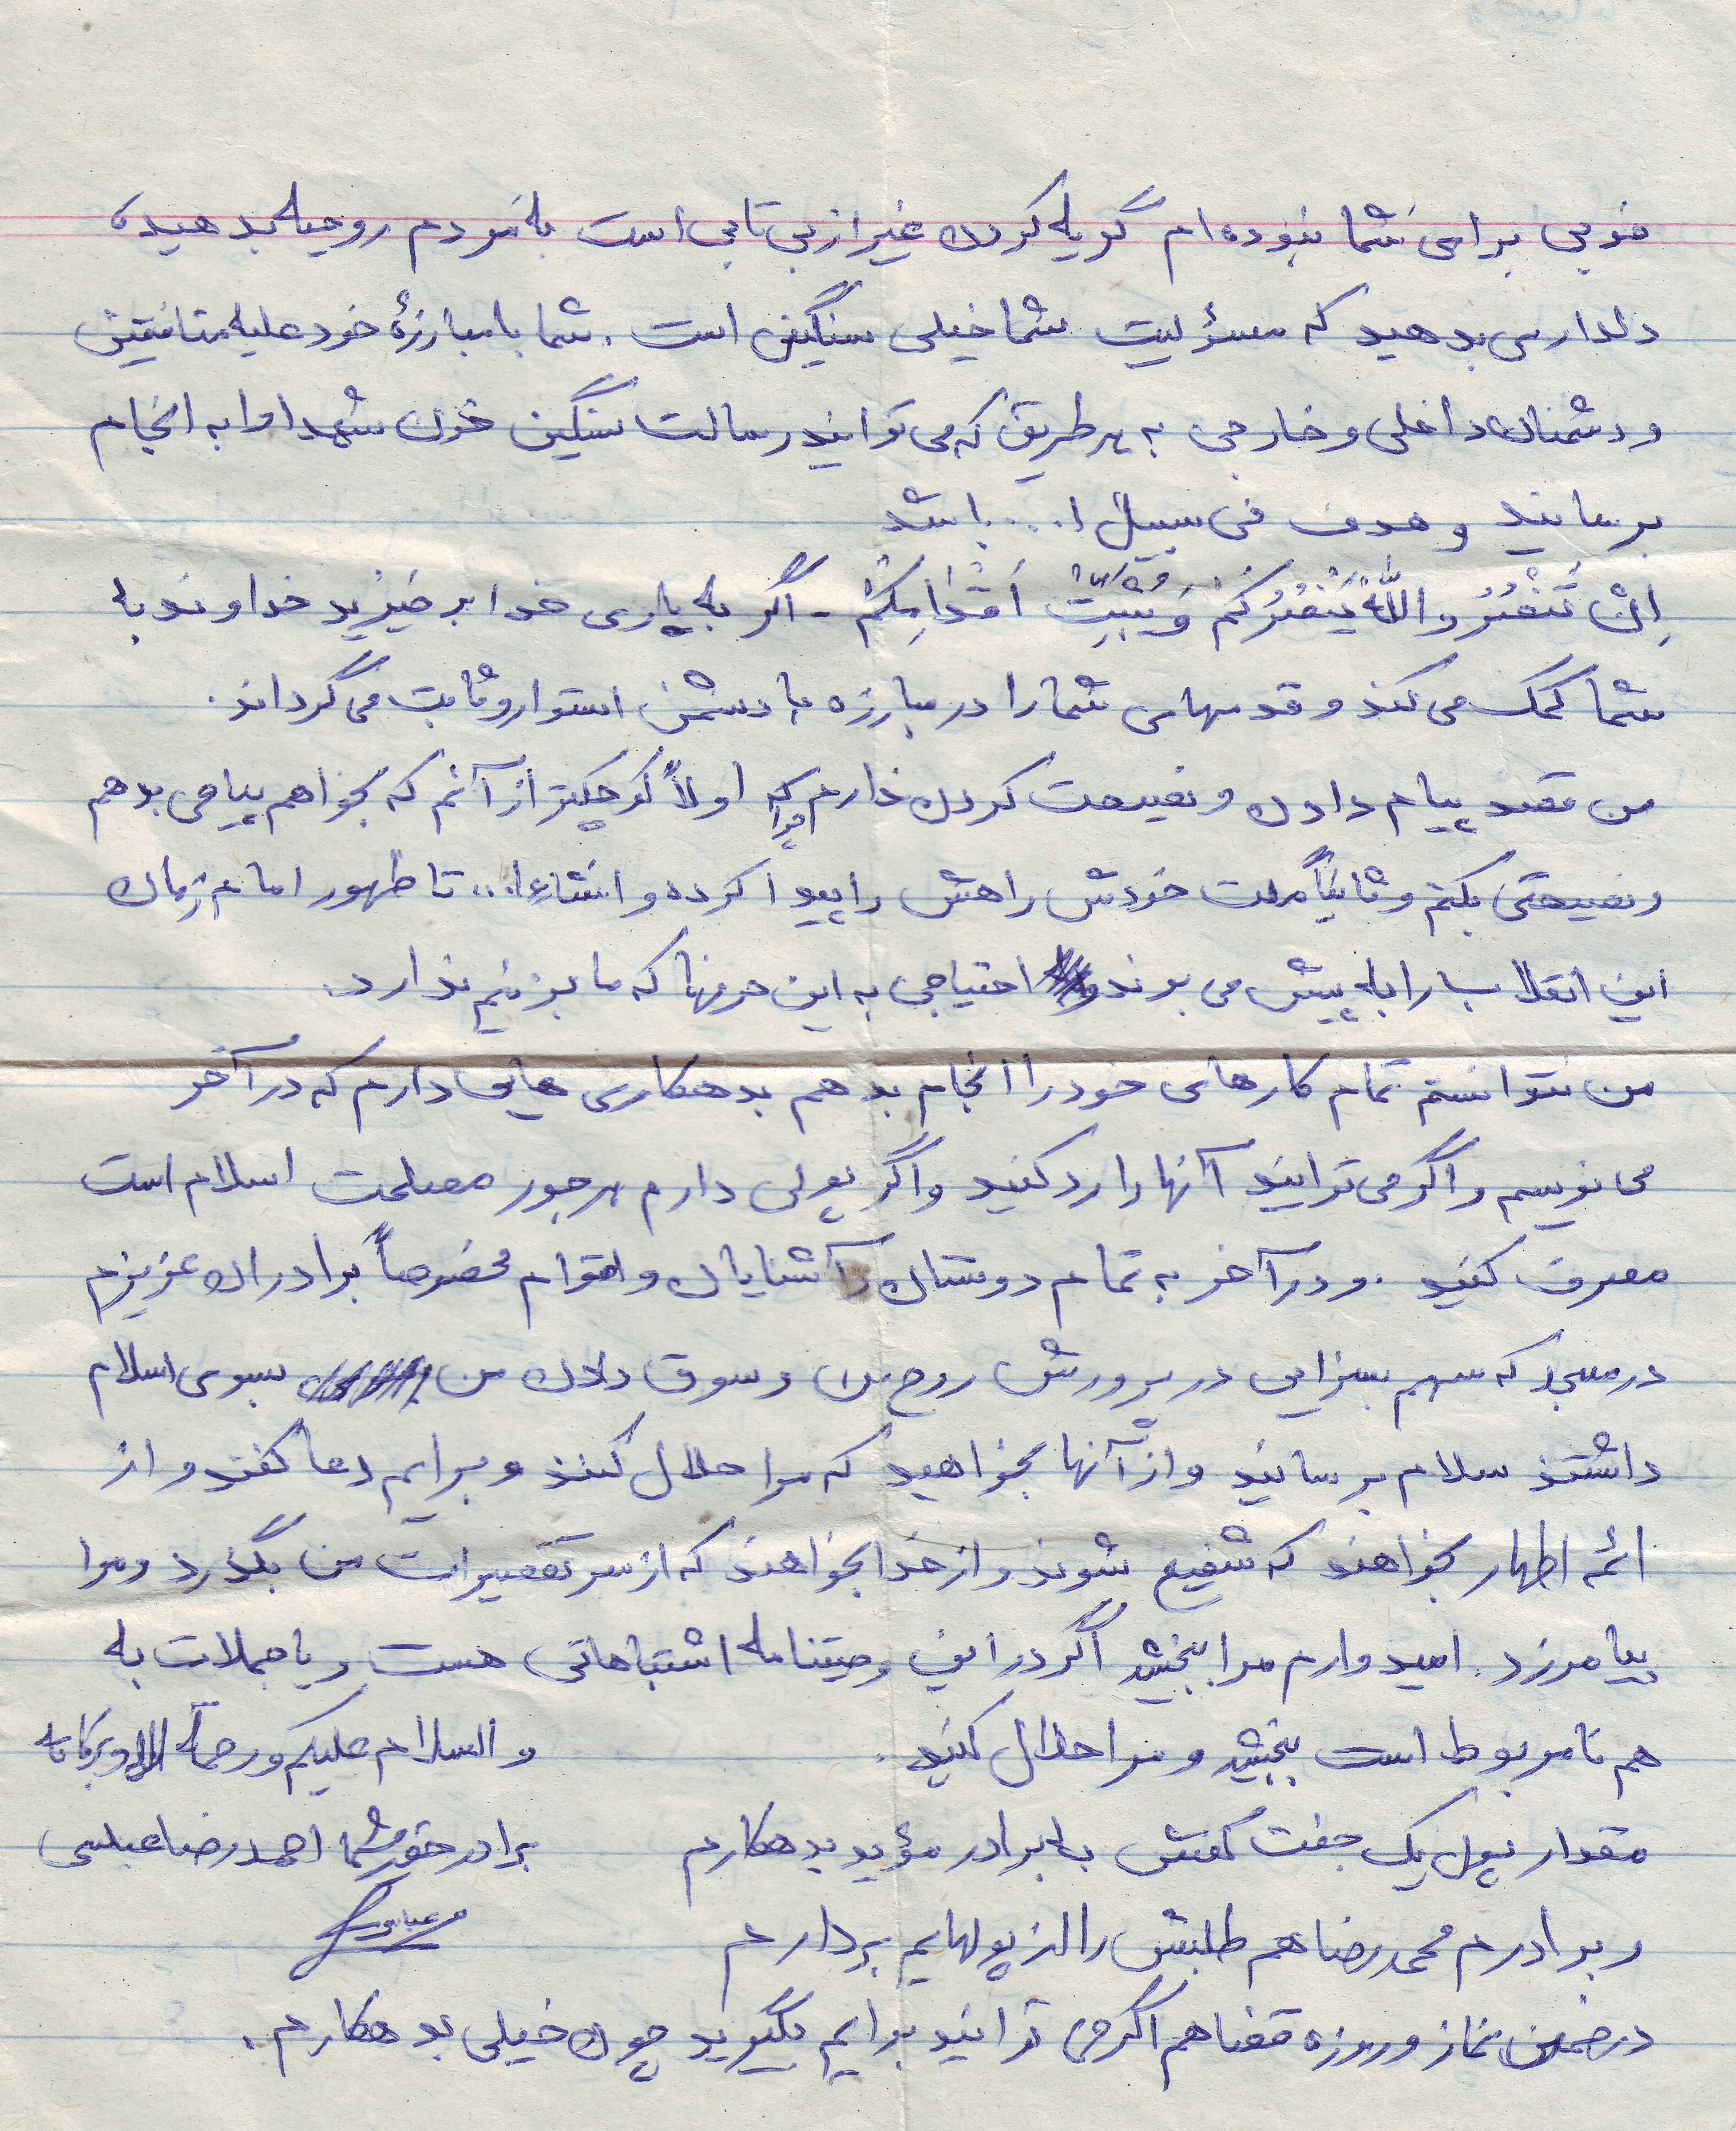 خوبی برای شما نبوده‌ام گریه کردن غیر از بی تابی است به مردم روحیه بدهید،
دلداری بدهید که مسؤلیت شما خیلی سنگین است. شما با مبارزهٔ خود علیه منافقین
و دشمنان داخلی و خارجی به هر طریق که می توانید رسالت سنگین خون شهدا را به انجام
برسانید و هدف فی سبیل ا... باشد
اِنْ تَنْصُرُوا اللّٰهَ یَنْصُرْکُمْ وَ یُثَبِّتْ اَقْدٰامَکُمْ - اگر به یاری خدا برخیزید خداوند به
شما کمک می کند و قدمهای شما را در مبارزه با دشمن استوار و ثابت می گرداند.
من قصد پیام دادن و نصیحت کردن ندارم چرا که اولاً کوچکتر از آنم که بخواهم پیامی بدهم
و نصیحتی بکنم و ثانیاً ملت خودش راهش را پیدا کرده و انشاءا... تا ظهور امام زمان
این انقلاب را به پیش می برند و احتیاجی به این حرفها که ما بزنیم ندارد.
من نتوانستم تمام کارهای خود را انجام بدهم بدهکاری هایی دارم که در آخر
می نویسم و اگر می توانید آنها را رد کنید و اگر پولی دارم هر جور مصلحت اسلام است
مصرف کنید. و در آخر به تمام دوستان و آشنایان و اقوام مخصوصاً برادران عزیزم
در مسجد که سهم بسزایی در پرورش روح من و سوق دادن من بسوی اسلام
داشتند سلام برسانید و از آنها بخواهید که مرا حلال کنند و برایم دعا کنند و از
ائمه اطهار بخواهند که شفیع شوند و از خدا بخواهند که از سر تقصیرات من بگذرد و مرا
بیامرزد. امیدوارم مرا ببخشید اگر در این وصیتنامه اشتباهاتی هست و یا جملات به
هم نامربوط است ببخشید و مرا حلال کنید. والسلام علیکم و رحمة الله و برکاته
مقدار پول یک جفت کفش به برادر مؤید بدهکارم برادر حقیر شما احمدرضا عباسی
و برادرم محمدرضا هم طلبش را از پولهایم بردارد عباسی
در ضمن نماز و روزه قضا هم اگر می توانید برایم بگیرید چون خیلی بدهکارم.